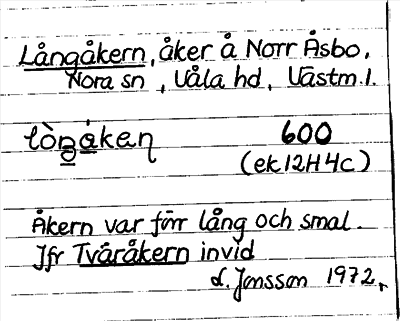 Långåkern, åker å Norr Åsbo,
Nora sn, Våla hd, Västm. l.
600
(ek 12H4c)
Åkern var förr lång och smal.
Jfr Tväråkern invid
L. Jonsson 1972.